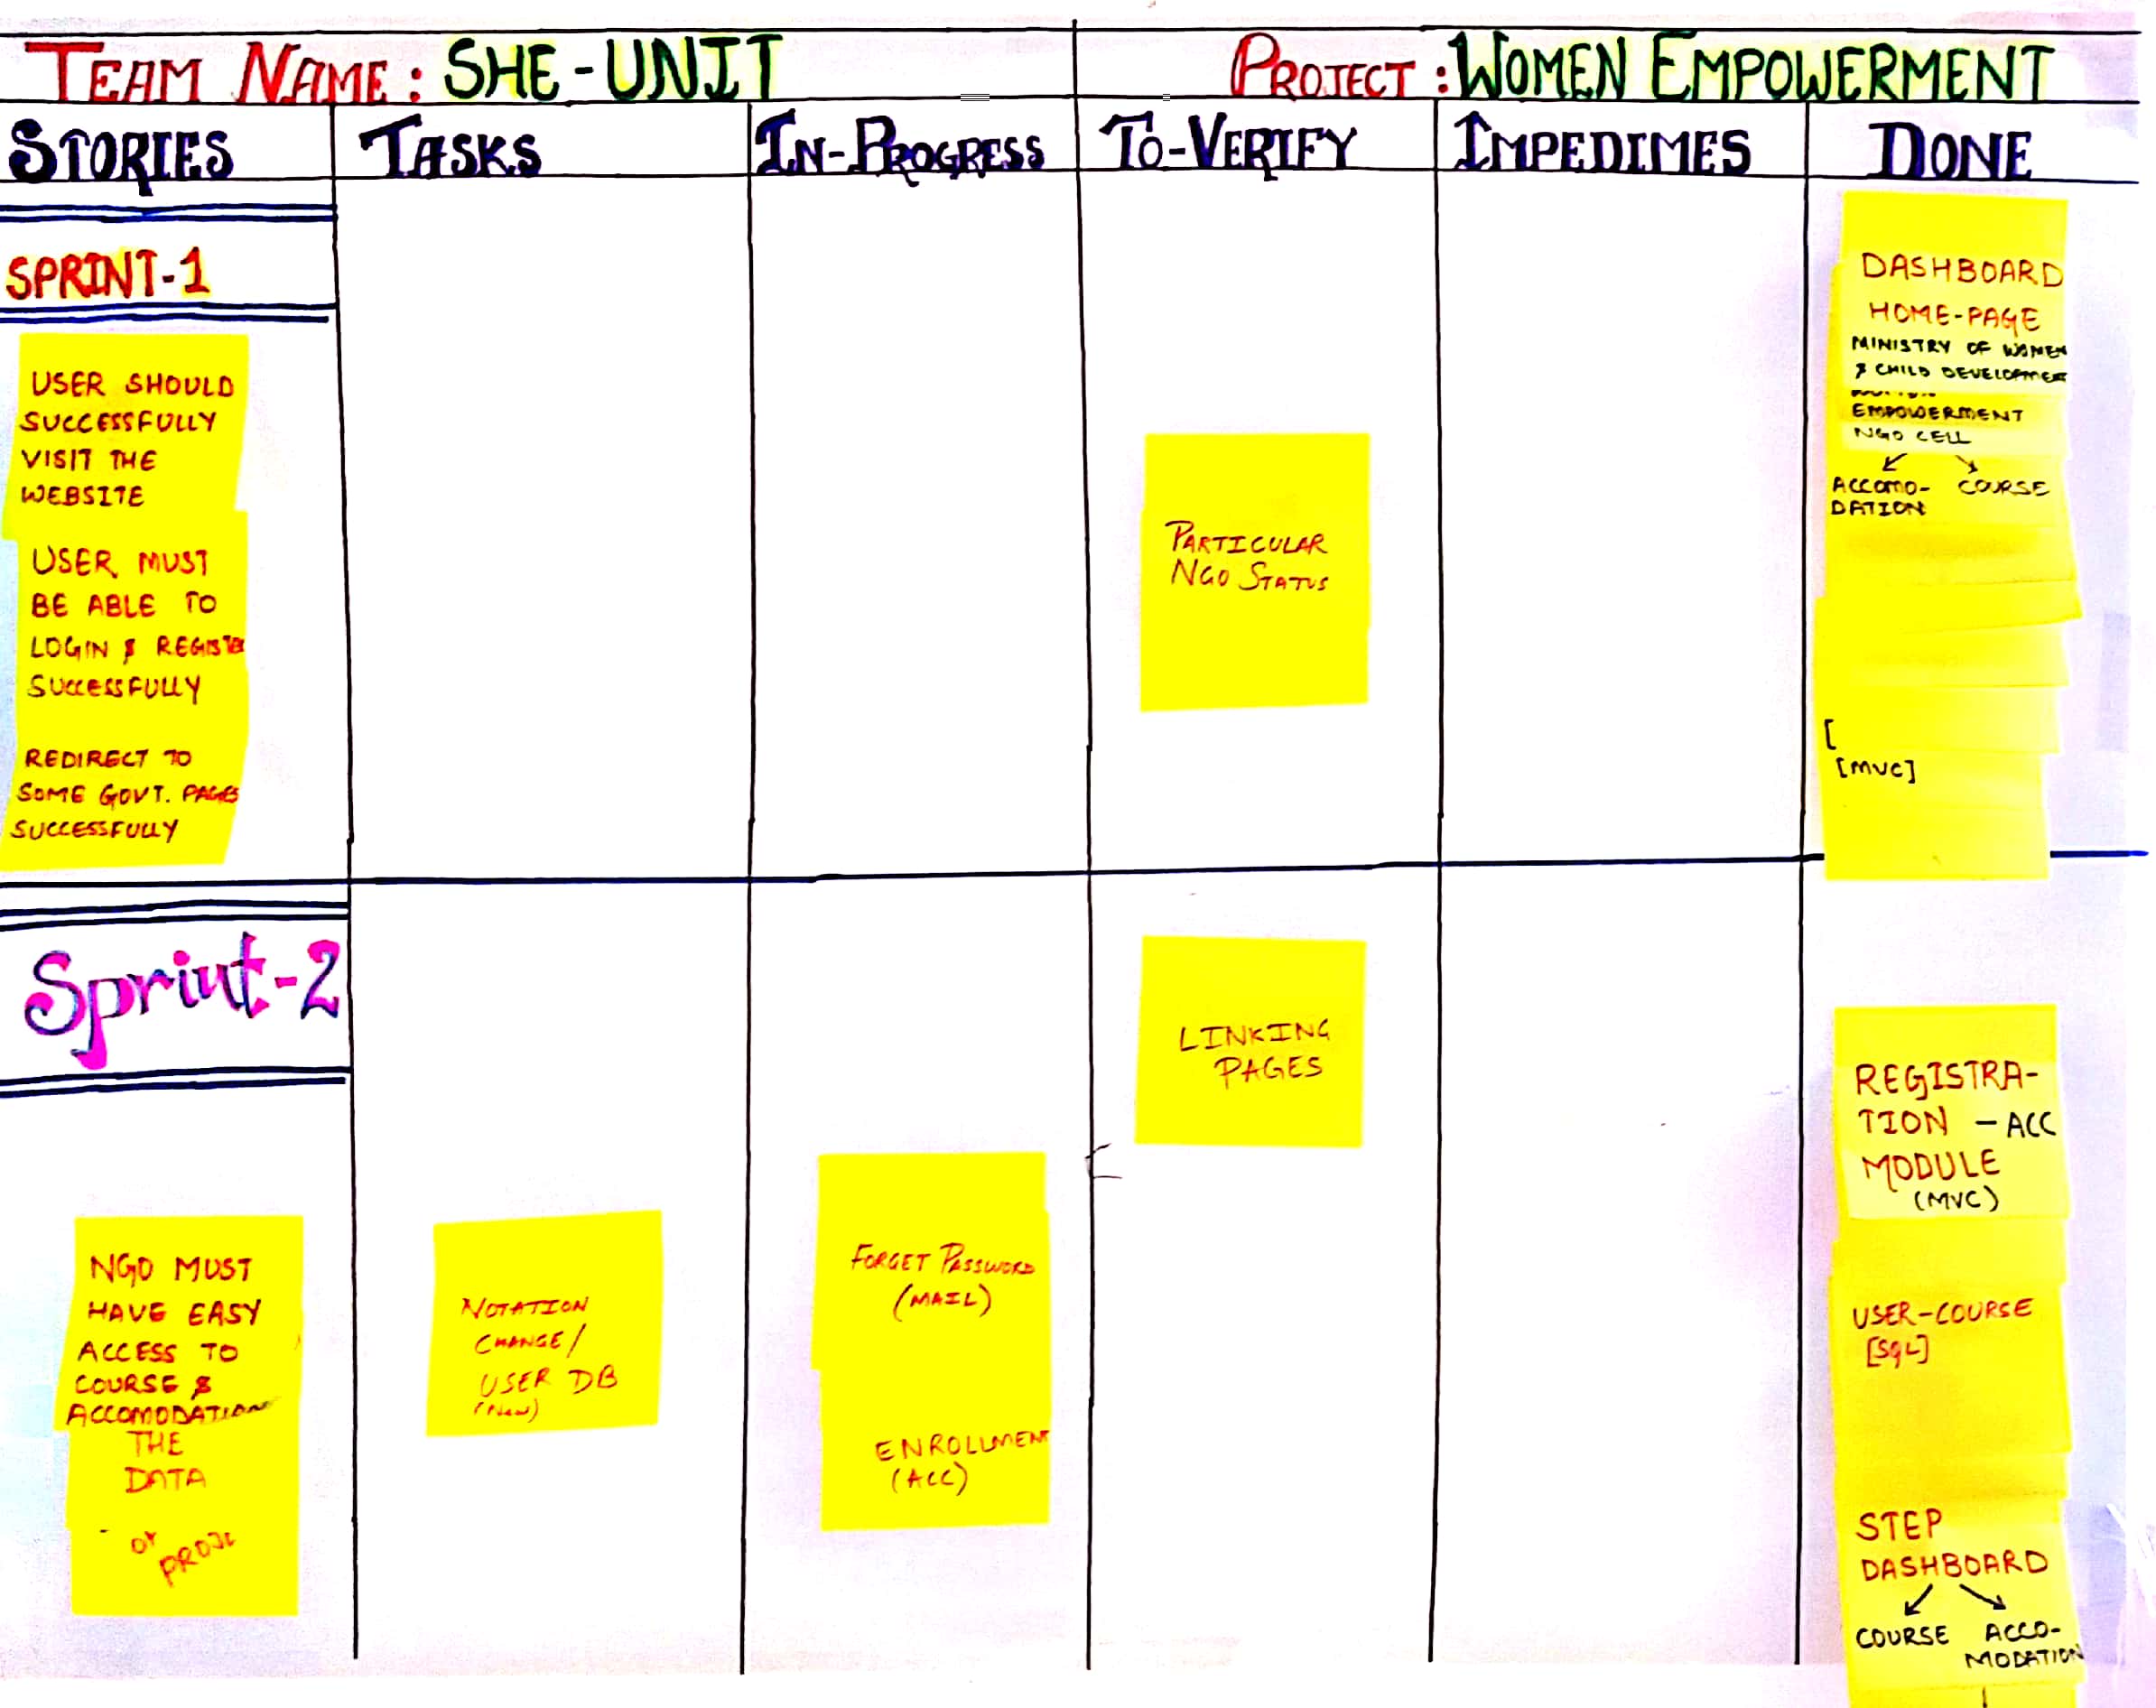 TEAM NAME: SHE-UNIT
PROJECT: WOMEN EMPOWERMENT
STORIES
TASKS
IN-PROGRESS
TO-VERIFY
IMPEDIMES
DONE
SPRINT-1
USER SHOULD
SUCCESSFULLY
VISIT THE
WEBSITE
USER MUST
BE ABLE TO
LOGIN & REGISTER
SUCCESSFULLY
REDIRECT TO
SOME GOVT. PAGES
SUCCESSFULLY
PARTICULAR
NGO STATUS
DASHBOARD
HOME-PAGE
MINISTRY OF WOMEN
& CHILD DEVELOPMENT
EMPOWERMENT
NGO CELL
↙ ↘
ACCOMO- COURSE
DATION
[
[MVC]
Sprint-2
NGO MUST
HAVE EASY
ACCESS TO
COURSE &
ACCOMODATION
THE
DATA
OF
PROJE
NOTATION
CHANGE/
USER DB
(New)
FORGET PASSWORD
(MAIL)
ENROLLMENT
(ACC)
LINKING
PAGES
REGISTRA-
TION - ACC
MODULE
(MVC)
USER-COURSE
[SQL]
STEP
DASHBOARD
↙ ↘
COURSE ACCO-
MODATION